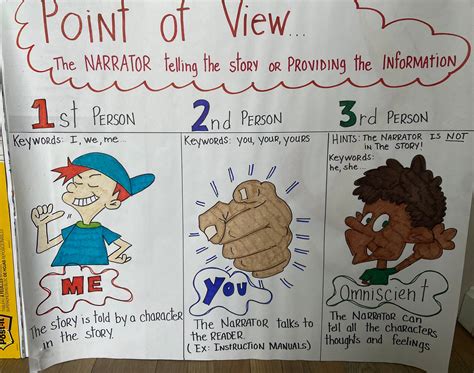 Point of View...
The NARRATOR telling the story or PROVIDING the INFORMATION
1st PERSON
Keywords: I, we, me...
ME
The story is told by a character
in the story.
2nd PERSON
Keywords: you, your, yours
YOU
The NARRATOR talks to
the READER.
(Ex: INSTRUCTION MANUALS)
3rd PERSON
HINTS: THE NARRATOR IS NOT
IN THE STORY!
Keywords:
he, she...
Omniscient
The NARRATOR can
tell all the characters
thoughts and feelings